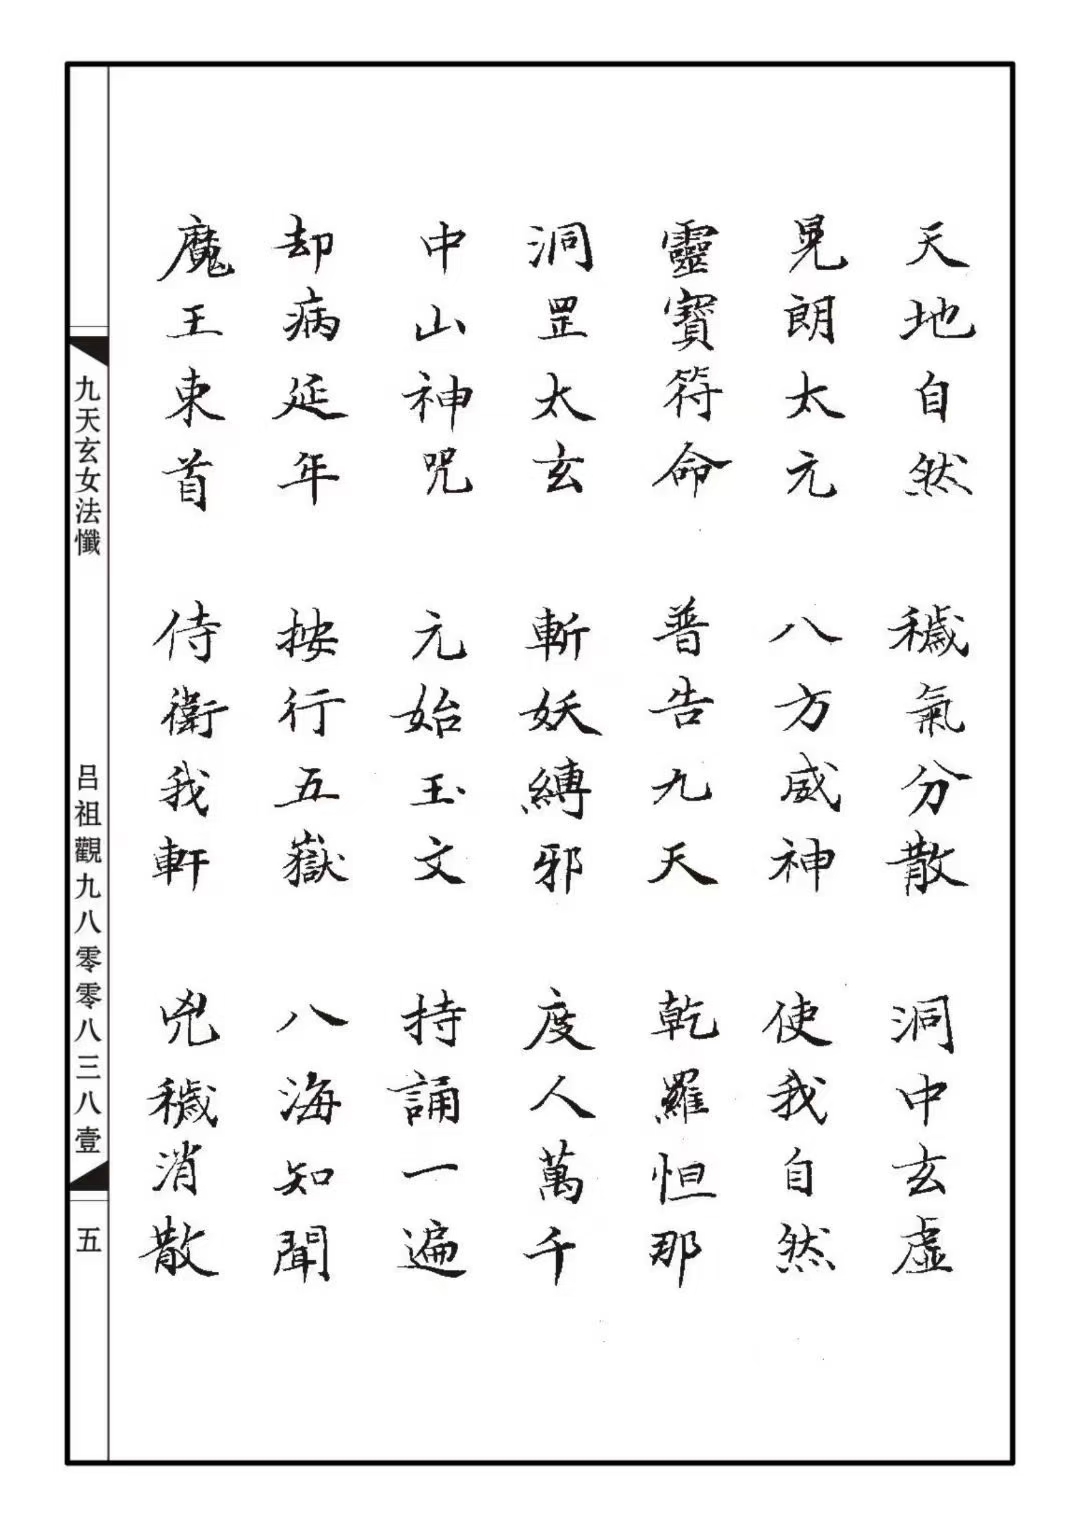 天地自然　穢氣分散　洞中玄虛
晃朗太元　八方威神　使我自然
靈寶符命　普告九天　乾羅怛那
洞罡太玄　斬妖縛邪　度人萬千
中山神咒　元始玉文　持誦一遍
却病延年　按行五嶽　八海知聞
魔王束首　侍衛我軒　兇穢消散
九天玄女法懺　吕祖觀九八零零八三八壹　五